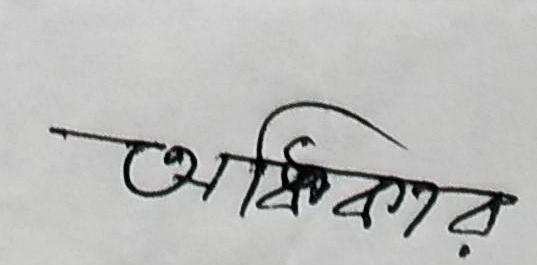 অধিকার